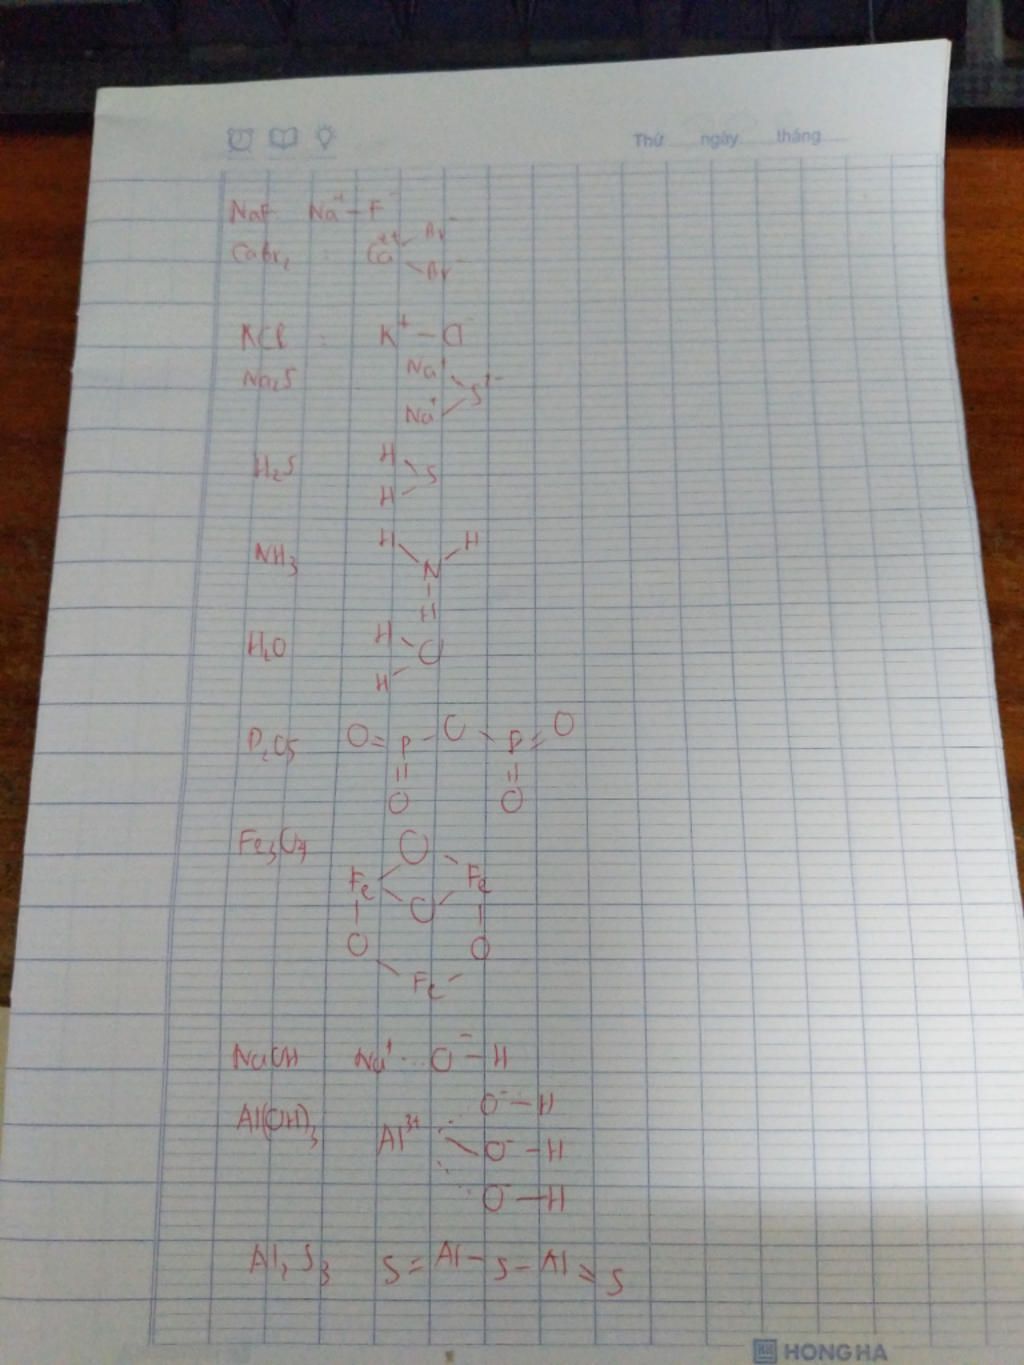 Thứ ngày tháng
NaF Na⁺ – F⁻
CaBr₂ : Ca⁺⁺ Br⁻ Br⁻
KCl : K⁺ – Cl⁻
Na₂S Na⁺ Na⁺ S²⁻
H₂S H H S
NH₃ H H N H
H₂O H H O
P₂O₅ O = P – O – P = O
O O
Fe₃O₄ O
Fe Fe
O
O O
Fe
NaOH Na⁺ ... O⁻ – H
Al(OH)₃ Al³⁺ O⁻ – H
O⁻ – H
O⁻ – H
Al₂S₃ S = Al – S – Al = S
HONG HA